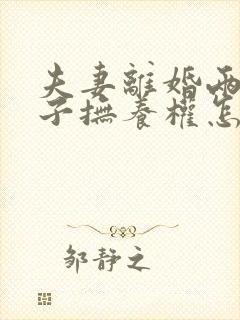 夫妻離婚兩
子撫養權怎
鄒靜之